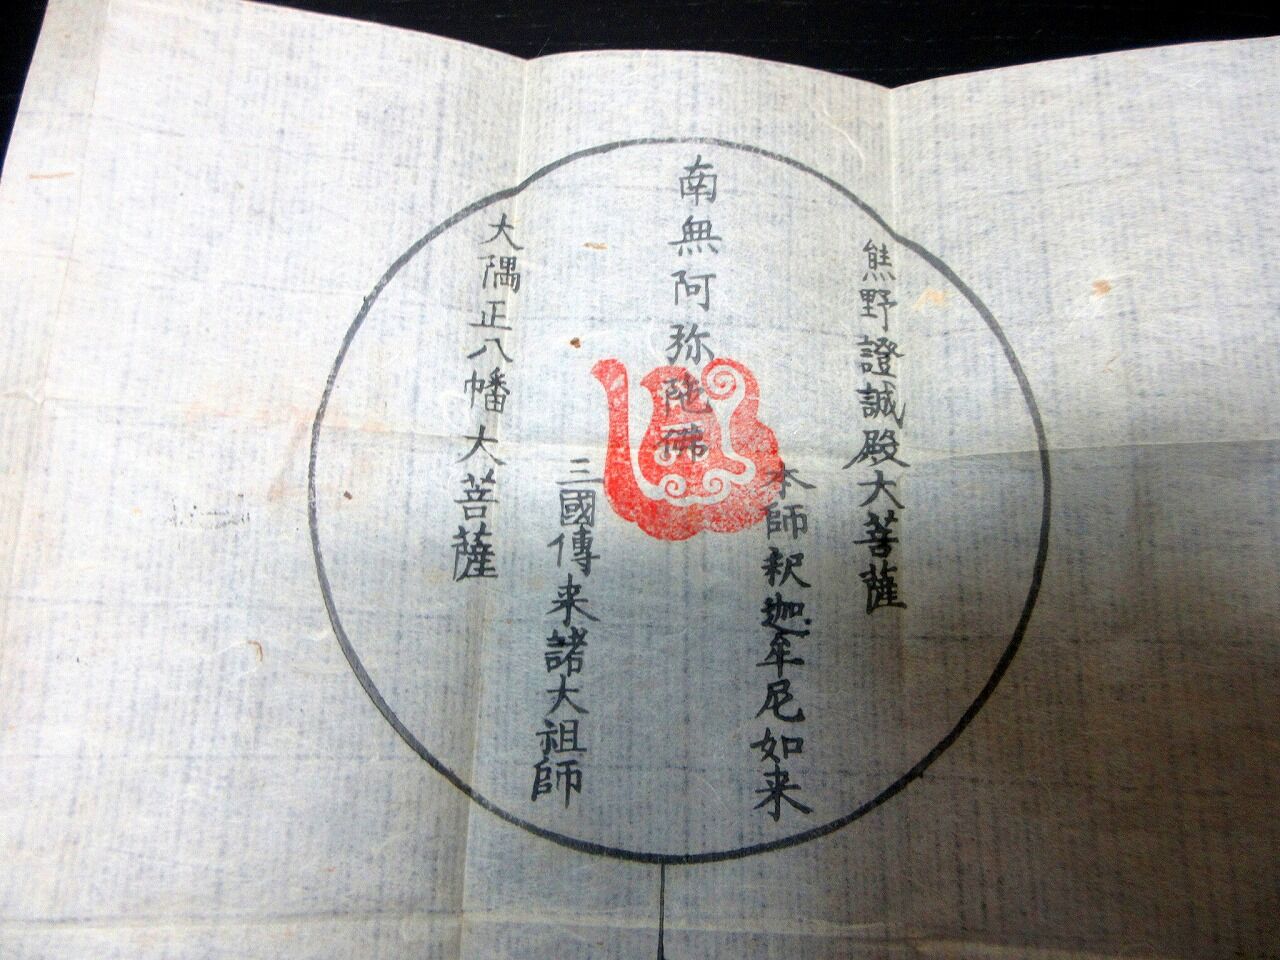 熊野證誠殿大菩薩
本師釈迦牟尼如来
南無阿弥陀佛
三國傳来諸大祖師
大隅正八幡大菩薩